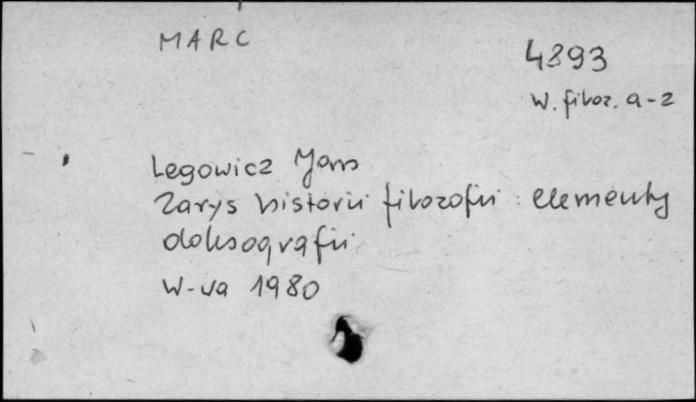 MARC
4893
W. filoz. a-z
Legowicz Jan
Zarys historii filozofii : elementy
doksografii
W-wa 1980